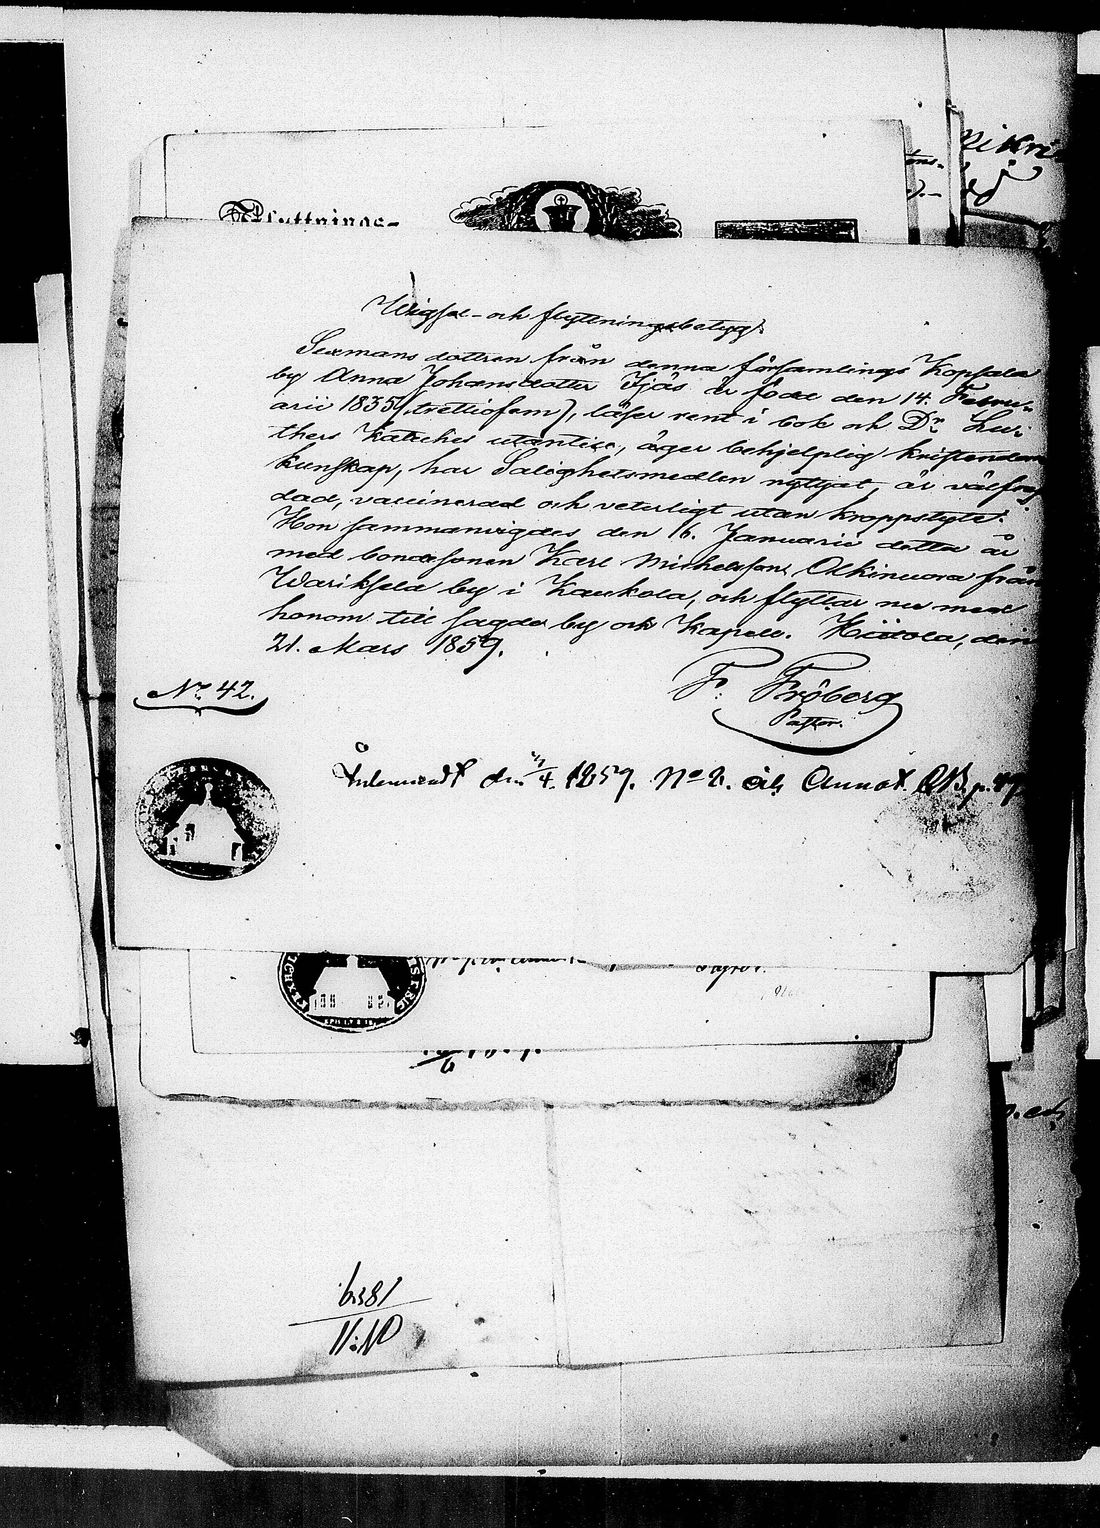 Flyttnings-
Wigsel- och flyttningsbetyg.
Sexmans dottren från denna församlings Kopsala
by Anna Johansdotter Ijäs är född den 14. Febru-
arii 1835 (trettiofem), läser rent i bok och Dr. Lu-
thers Kateches utantill, äger behjelplig kristendoms
kunskap, har Salighetsmedlen nyttjat, är välfrej-
dad, vaccinerad och veterligt utan kroppslyte.
Hon sammanvigdes den 16. Januarii detta år
med bondesonen Karl Michelsson Olkinuora från
Warikselä by i Kaukola, och flyttar nu med
honom till sagde by och Kapell. Hiitola, den
21. Mars 1859.
F. Fröberg
Pastor.
No 42.
Inlemnadt den /4. 1859. No 2. Annot. p.
Pastor.
1859
No: 11